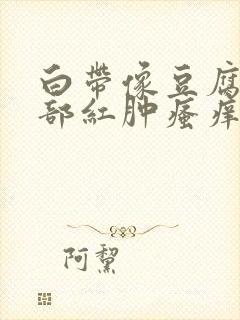 白带像豆腐
部红肿瘙痒
阿黧